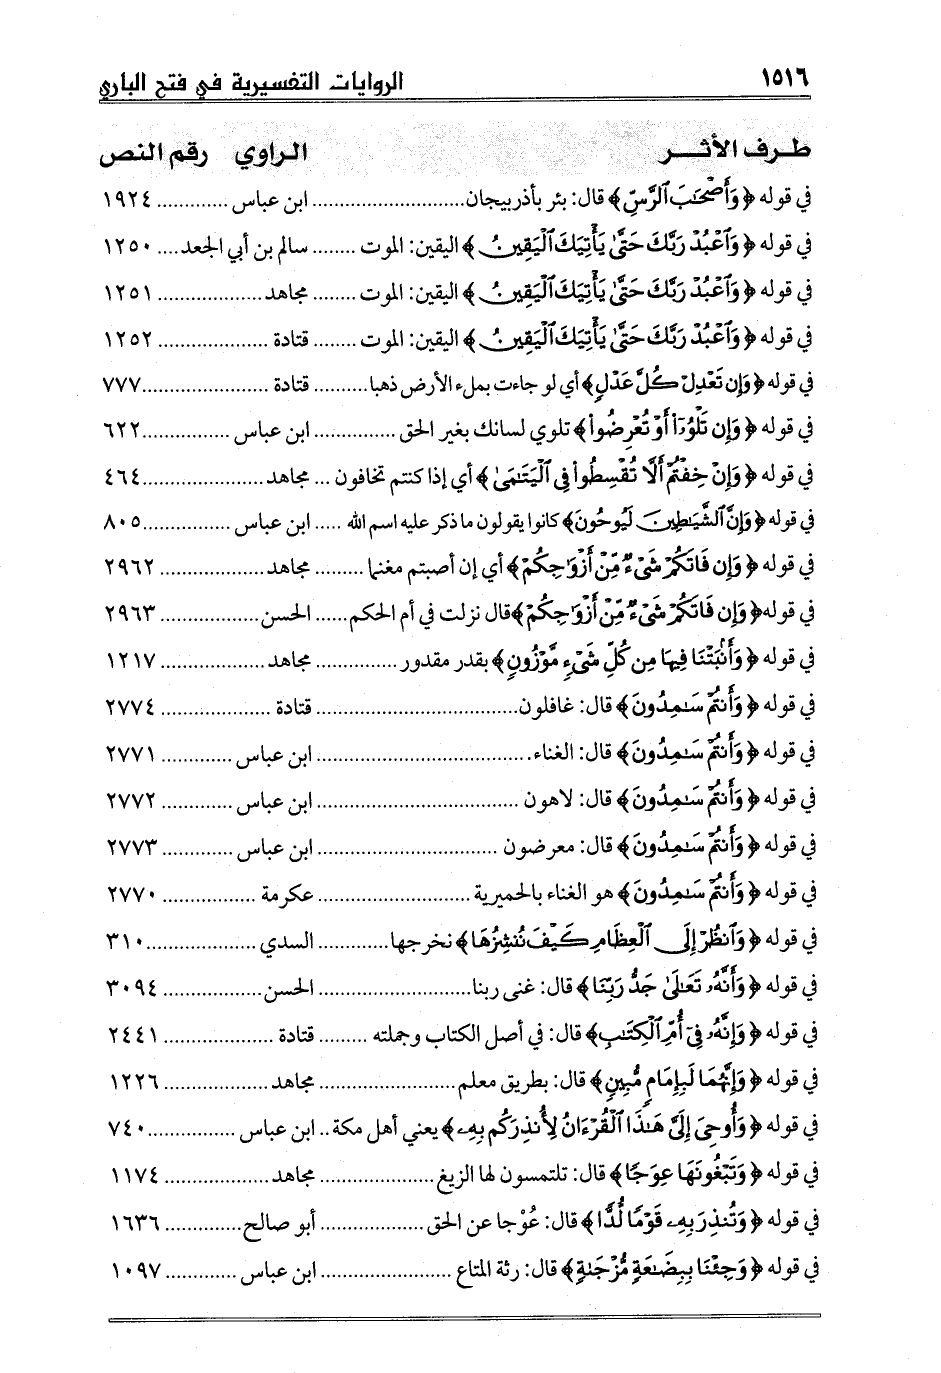 ١٥١٦ الروايات التفسيرية في فتح الباري
طرف الأثر الراوي رقم النص
في قوله ﴿وَأَصْحَٰبَ ٱلرَّسِّ﴾ قال: بئر بأذربيجان............................ ابن عباس ............. ١٩٢٤
في قوله ﴿وَٱعْبُدْ رَبَّكَ حَتَّىٰ يَأْتِيَكَ ٱلْيَقِينُ﴾ اليقين: الموت ........ سالم بن أبي الجعد.... ١٢٥٠
في قوله ﴿وَٱعْبُدْ رَبَّكَ حَتَّىٰ يَأْتِيَكَ ٱلْيَقِينُ﴾ اليقين: الموت ........ مجاهد ................... ١٢٥١
في قوله ﴿وَٱعْبُدْ رَبَّكَ حَتَّىٰ يَأْتِيَكَ ٱلْيَقِينُ﴾ اليقين: الموت ........ قتادة .................... ١٢٥٢
في قوله ﴿وَإِن تَعْدِلْ كُلَّ عَدْلٍ﴾ أي لو جاءت بملء الأرض ذهبا.......... قتادة .......................٧٧٧
في قوله ﴿وَإِن تَلْوُۥٓا۟ أَوْ تُعْرِضُوا۟﴾ تلوي لسانك بغير الحق ............... ابن عباس ................٦٢٢
في قوله ﴿وَإِنْ خِفْتُمْ أَلَّا تُقْسِطُوا۟ فِى ٱلْيَتَٰمَىٰ﴾ أي إذا كنتم تخافون ... مجاهد......................٤٦٤
في قوله ﴿وَإِنَّ ٱلشَّيَٰطِينَ لَيُوحُونَ﴾ كانوا يقولون ما ذكر عليه اسم الله ..... ابن عباس ................٨٠٥
في قوله ﴿وَإِن فَاتَكُمْ شَىْءٌ مِّنْ أَزْوَٰجِكُمْ﴾ أي إن أصبتم مغنما ......... مجاهد ................... ٢٩٦٢
في قوله ﴿وَإِن فَاتَكُمْ شَىْءٌ مِّنْ أَزْوَٰجِكُمْ﴾ قال نزلت في أم الحكم...... الحسن.................. ٢٩٦٣
في قوله ﴿وَأَنۢبَتْنَا فِيهَا مِن كُلِّ شَىْءٍ مَّوْزُونٍ﴾ بقدر مقدور ............... مجاهد ................... ١٢١٧
في قوله ﴿وَأَنتُمْ سَٰمِدُونَ﴾ قال: غافلون..................................... قتادة .................... ٢٧٧٤
في قوله ﴿وَأَنتُمْ سَٰمِدُونَ﴾ قال: الغناء...................................... ابن عباس ............. ٢٧٧١
في قوله ﴿وَأَنتُمْ سَٰمِدُونَ﴾ قال: لاهون ..................................... ابن عباس ............. ٢٧٧٢
في قوله ﴿وَأَنتُمْ سَٰمِدُونَ﴾ قال: معرضون ................................. ابن عباس ............. ٢٧٧٣
في قوله ﴿وَأَنتُمْ سَٰمِدُونَ﴾ هو الغناء بالحميرية ............................ عكرمة ................. ٢٧٧٠
في قوله ﴿وَٱنظُرْ إِلَى ٱلْعِظَامِ كَيْفَ نُنشِزُهَا﴾ نخرجها............. السدي ....................٣١٠
في قوله ﴿وَأَنَّهُۥ تَعَٰلَىٰ جَدُّ رَبِّنَا﴾ قال: غنى ربنا............................ الحسن.................. ٣٠٩٤
في قوله ﴿وَإِنَّهُۥ فِىٓ أُمِّ ٱلْكِتَٰبِ﴾ قال: في أصل الكتاب وجملته ......... قتادة .................... ٢٤٤١
في قوله ﴿وَإِنَّهُمَا لَبِإِمَامٍ مُّبِينٍ﴾ قال: بطريق معلم......................... مجاهد ................... ١٢٢٦
في قوله ﴿وَأُوحِىَ إِلَىَّ هَٰذَا ٱلْقُرْءَانُ لِأُنذِرَكُم بِهِۦ﴾ يعني أهل مكة .. ابن عباس ................٧٤٠
في قوله ﴿وَتَبْغُونَهَا عِوَجًا﴾ قال: تلتمسون لها الزيغ ..................... مجاهد ................... ١١٧٤
في قوله ﴿وَتُنذِرَ بِهِۦ قَوْمًا لُّدًّا﴾ قال: عُوْجا عن الحق ................... أبو صالح.............. ١٦٣٦
في قوله ﴿وَجِئْنَا بِبِضَٰعَةٍ مُّزْجَىٰةٍ﴾ قال: رثة المتاع ........................ ابن عباس ............. ١٠٩٧